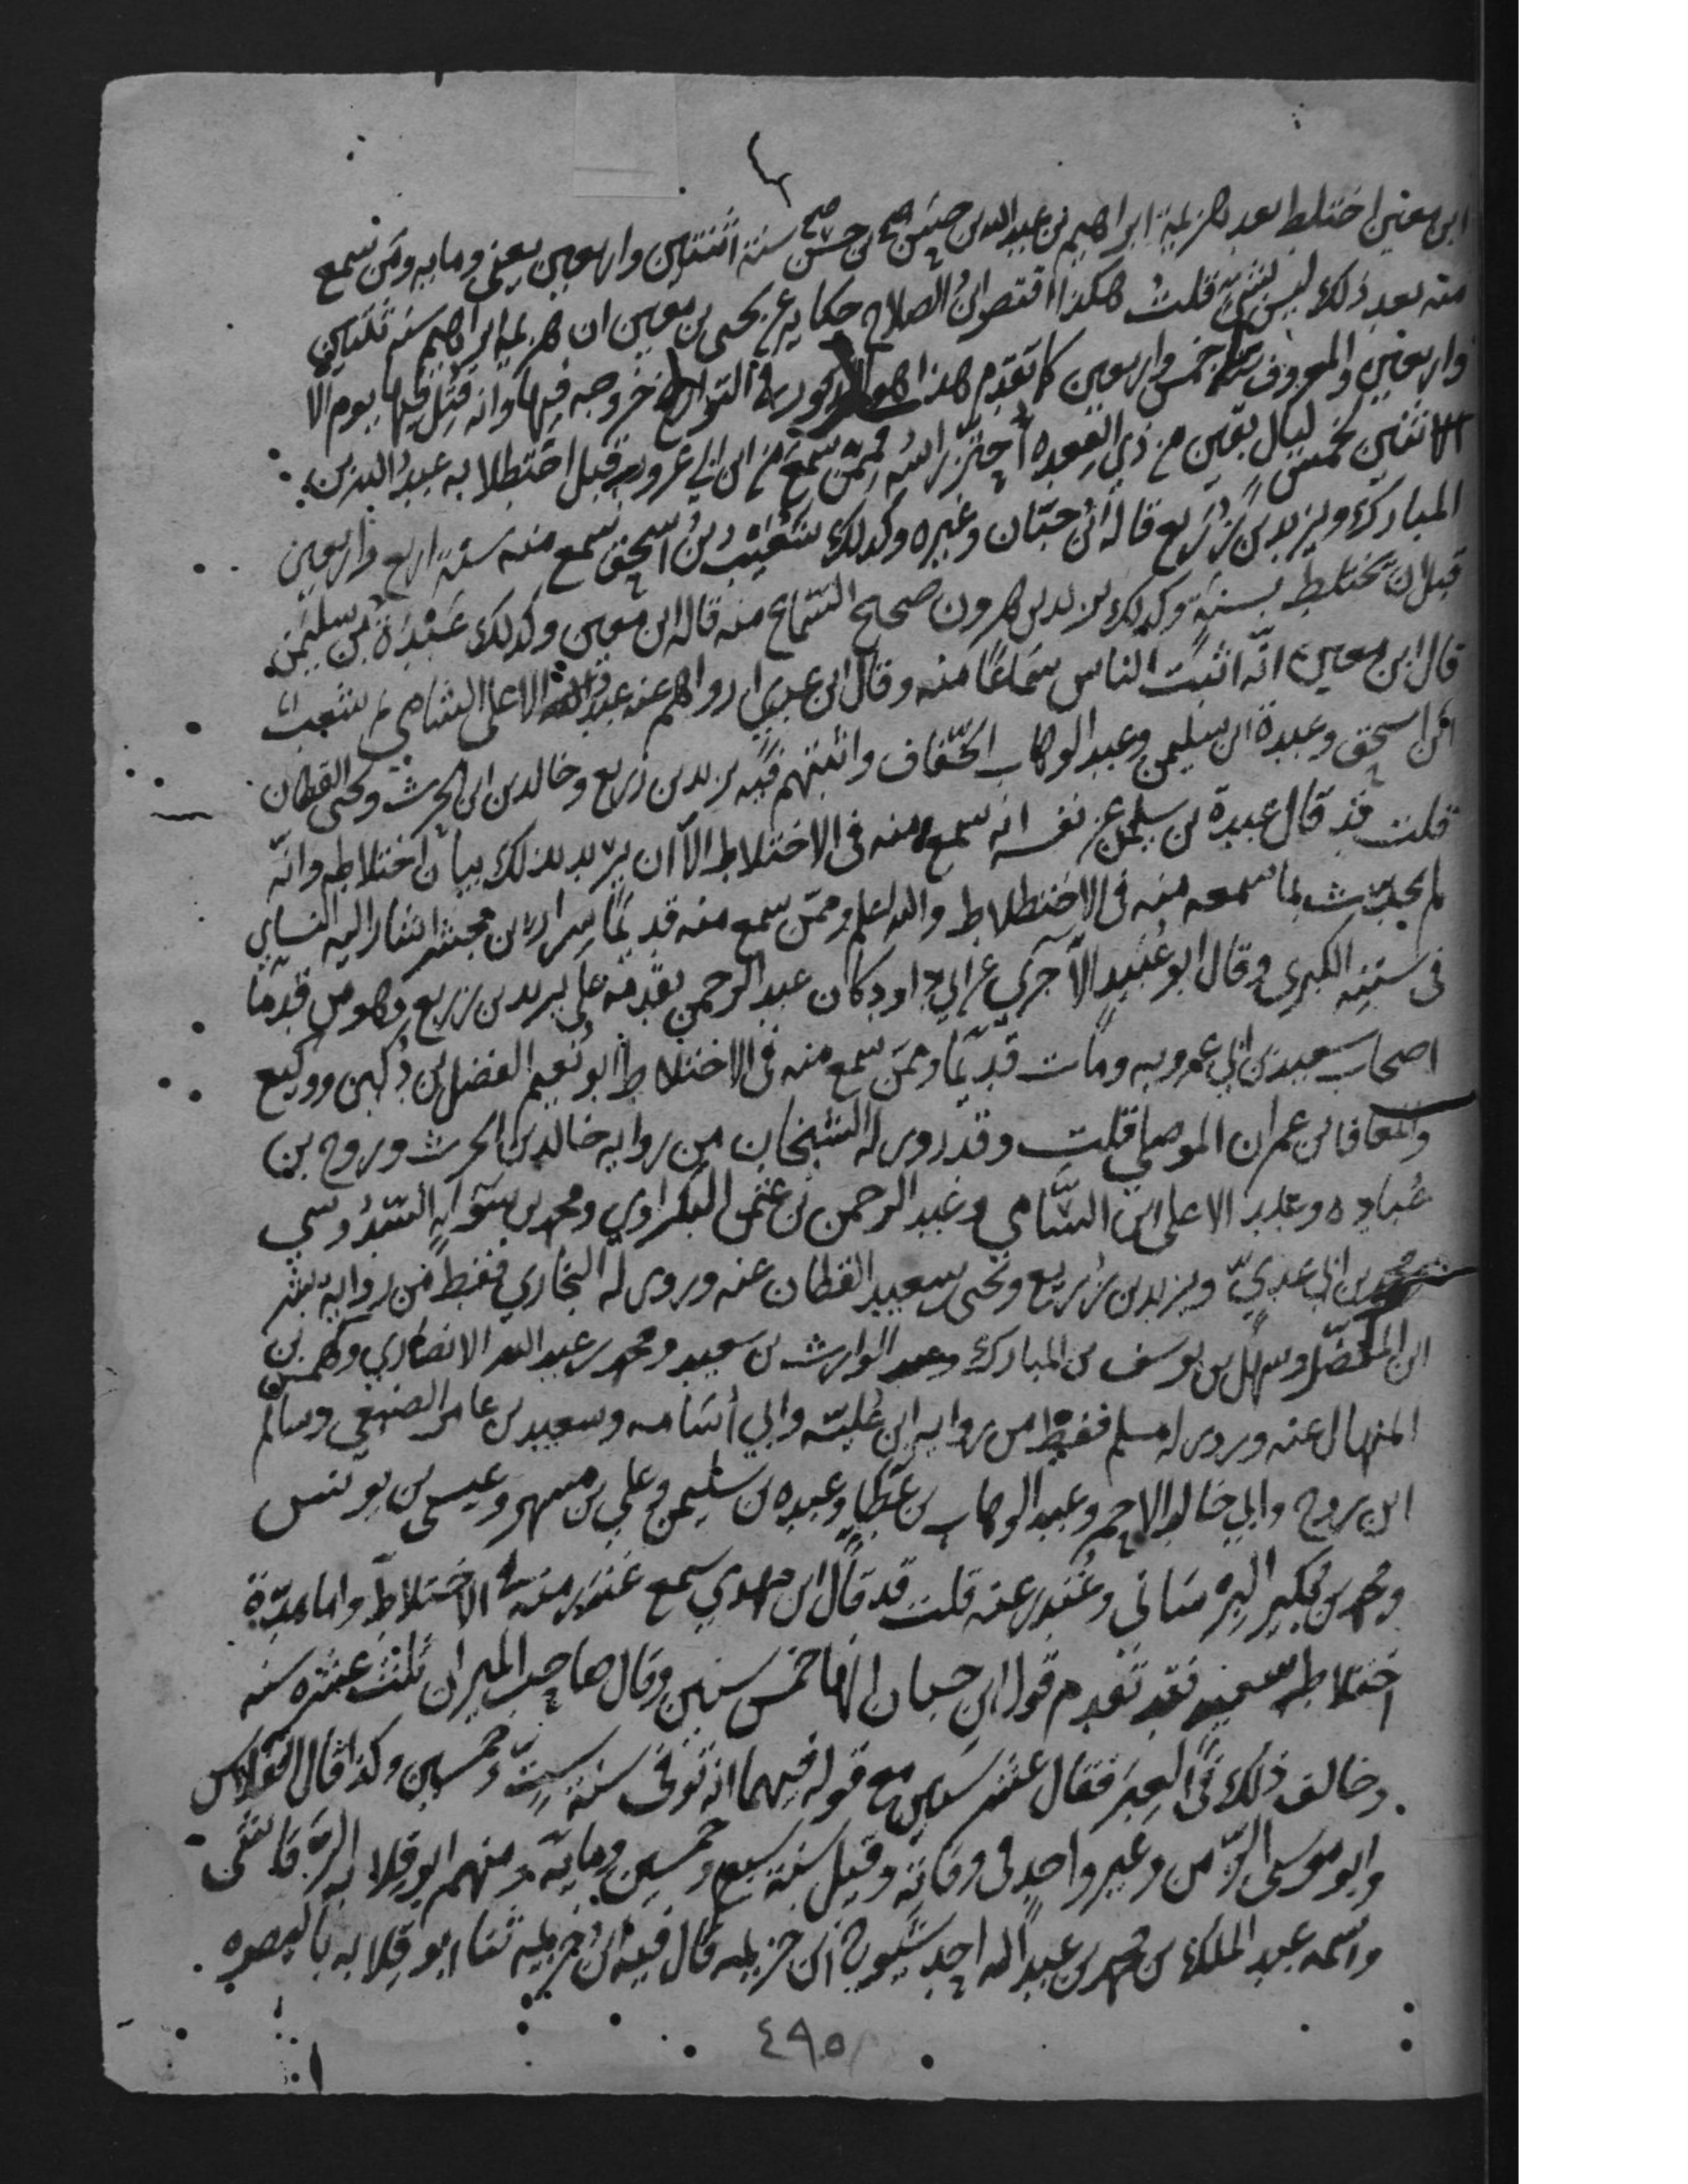 ابن معين اختلط بعد هزيمة ابراهيم بن عبد الله بن حسن بن حسن سنة اثنتين واربعين يعني ومايه ومن سمع
منه بعد ذلك ليس بشئ قلت هكذا اقتصر ابن الصلاح حكاية عن يحيى بن معين ان هزيمة ابراهيم سنه ثنتين
واربعين والمعروف سنة خمس واربعين كما تقدم هذا هو المذكور في التواريخ خروجه فيها وانه قتل فيها يوم الا
الاثنين لخمس ليال بقين من ذي القعده احتز راسه وممن سمع من ابن ابي عروبه قبل اختطلاطه عبد الله بن
المبارك ويزيد بن زريع قاله ابن حبان وغيره وكذلك شعيب بن اسحق سمع منه سنة اربع واربعين
قبل ان يختلط بسنة وكذلك يزيد بن هرون صحيح السماع منه قاله ابن معين وكذلك عبدة بن سليمن
قال ابن معين انه اثبت الناس سماعا منه وقال ابن عدي ارواهم عنه عبد الاعلى الشامي ثم شعيب
ابن اسحق وعبدة ابن سليمن وعبد الوهاب الخفاف واثبتهم فيه يزيد بن زريع وخالد بن الحرث ويحيى القطان
قلت قد قال عبدة بن سليمن عن نفسه انه سمع منه في الاختلاط الا ان يريد بذلك بيان اختلاطه وانه
لم يحدث بما سمعه منه في الاختطلاط والله اعلم وممن سمع منه قديما سرار بن مجشر اشار اليه النساي
في سننه الكبرى وقال ابو عبيد الآجري عن ابي داود كان عبد الرحمن يقدمه على يزيد بن زريع وهو من قدما
اصحاب سعيد بن ابي عروبه ومات قديما وممن سمع منه في الاختلاط ابو نعيم الفضل بن دكين ووكيع
والمعافا بن عمران الموصلي قلت وقد روى له الشيخان من روايه خالد بن الحرث وروح بن
عباده وعبد الاعلى ابن الشامي وعبد الرحمن بن عثمن البكراوي ومحمد بن سواء السدوسي
ومحمد بن ابي عدي ويزيد بن زريع ويحيى بن سعيد القطان عنه وروى له البخاري فقط من رواية بشر
ابن المفضل وسهل بن يوسف بن المبارك وعبد الوارث بن سعيد ومحمد بن عبد الله الانصاري وكهمس بن
المنهال عنه وروى له مسلم فقط من روايه ابن علية وابي أسامه وسعيد بن عامر الضبعي وسالم
ابن نوح وابي خالد الاحمر وعبد الوهاب بن عطا وعبده بن سليمن وعلي بن مسهر وعيسى بن يونس
ومحمد بن بكير البرساني وغندر عنه قلت قد قال ابن مهدي سمع غندر منه في الاختلاط واما مدة
اختلاط سعيد فقد تقدم قول ابن حبان انها خمس سنين وقال صاحب الميزان ثلث عشره سنه
وخالف ذلك في العبر فقال عشر سنين مع قوله فيهما انه توفى سنة ست وخمسين وكذا قال الفلاس
وابو موسى الزمن وغير واحد في وفاته وقيل سنة سبع وخمسين وماية ومنهم ابو قلابه الرقاشى
واسمه عبد الملك بن محمد بن عبد الله احد شيوخ ابن خزيمه قال فيه ابن خزيمه ثنا ابو قلابه بالبصره
٤٩٥